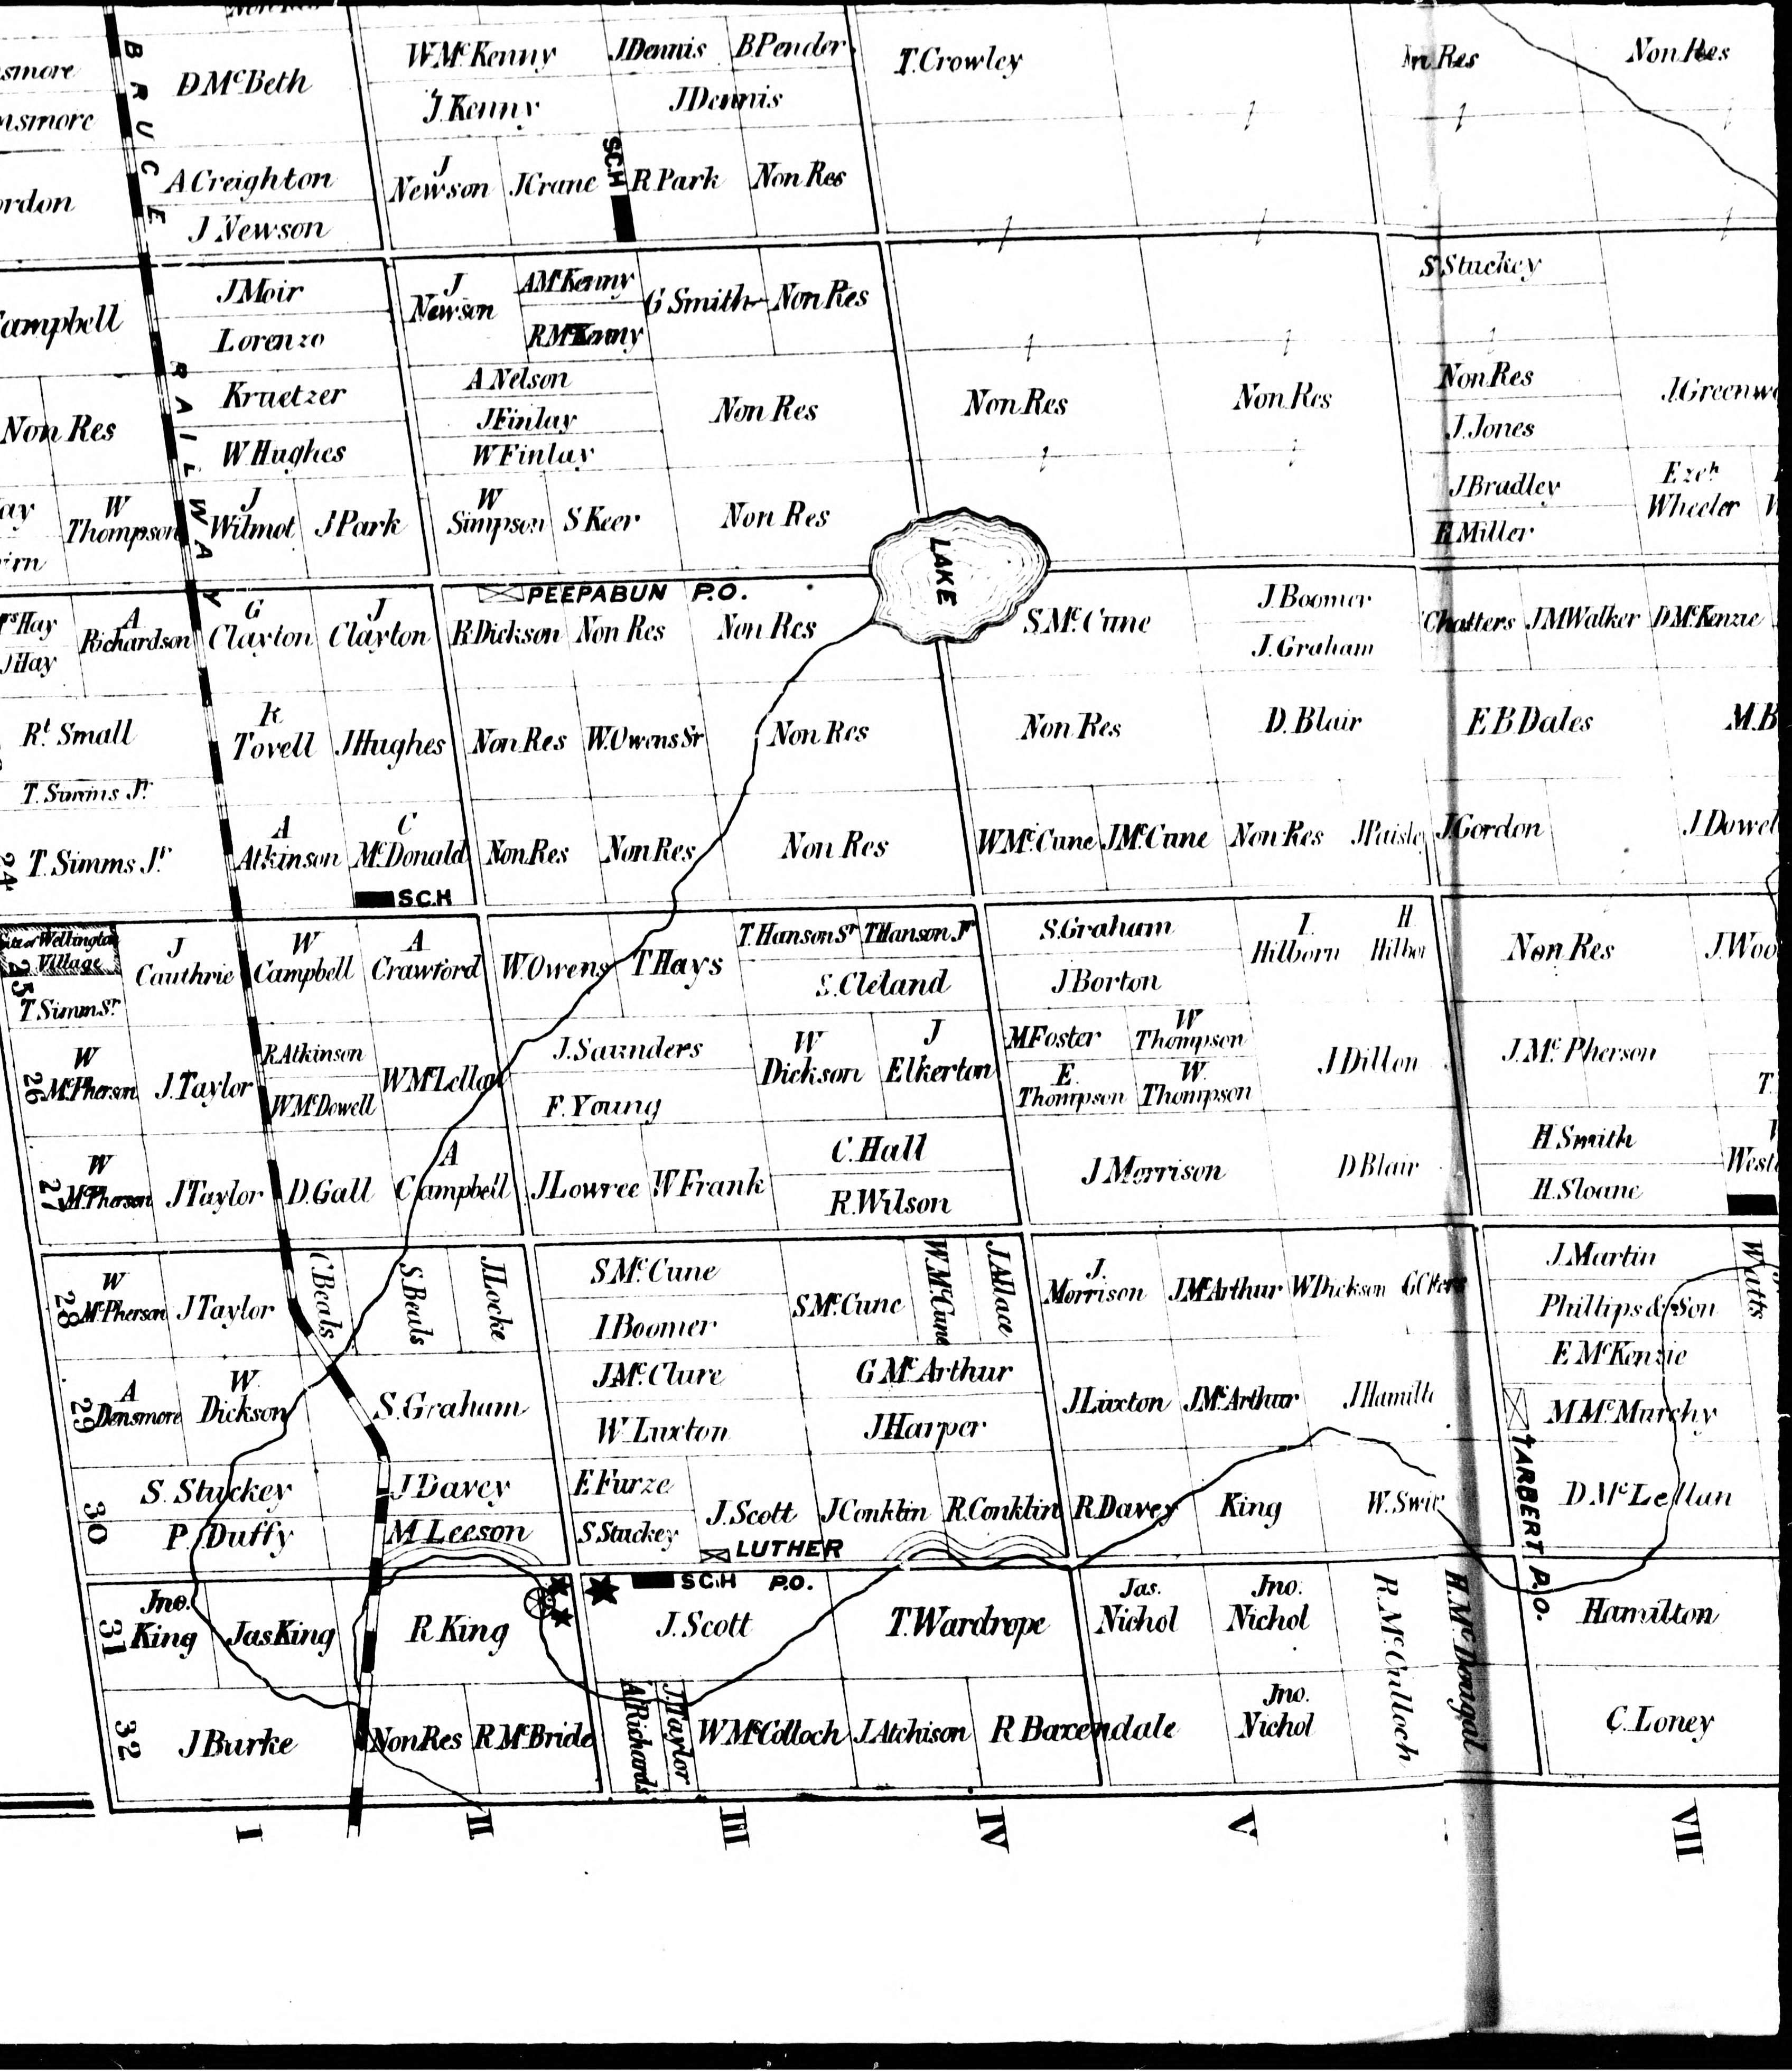 BRUCE RAILWAY
smore
D McBeth
W McKenny
J Dennis
B Pender
T. Crowley
Non Res
nsmore
J. Kenny
J Dennis
ordon
A Creighton
J Newson
J
Newson
J Crane
SC.H
R Park
Non Res
Campbell
J Moir
Lorenzo
J
Newson
A McKenny
R McKenny
G Smith
Non Res
S Stuckey
Non Res
Kruetzer
W Hughes
A Nelson
J Finlay
W Finlay
Non Res
Non Res
Non Res
Non Res
J. Jones
J. Greenwo
ay
W
Thompson
J
Wilmot
J Park
W
Simpson
S Keer
Non Res
LAKE
J Bradley
H Miller
Ezeh
Wheeler
PEEPABUN P.O.
rs Hay
J Hay
A
Richardson
G
Claxton
J
Claxton
R. Dickson
Non Res
Non Res
S. Mc. Cune
J. Boomer
J. Graham
Chatters
J M Walker
D McKenzie
Rt Small
T. Simms Jr.
R
Tovell
J Hughes
Non Res
W. Owens Sr
Non Res
Non Res
D. Blair
E B. Dales
M. B
24
T. Simms Jr
A
Atkinson
C
McDonald
SC.H
Non Res
Non Res
Non Res
W Mc. Cune
J Mc. Cune
Non Res
J Paisle
J Gordon
J Dowel
Site of Wellington
Village
25
T Simm Sr.
J
Cauthrie
W
Campbell
A
Crawford
W. Owens
T Hays
T. Hanson Sr
T Hanson Jr
S. Cleland
S. Graham
J Borton
I.
Hilborn
H
Hilbor
Non Res
J. Woo
26
W
McPherson
J. Taylor
R Atkinson
W McDowell
W McLellan
J. Saunders
F. Young
W
Dickson
J
Elkerton
M Foster
W
Thompson
E.
Thompson
W.
Thompson
J Dillon
J. Mc Pherson
T.
27
W
McPherson
J Taylor
D. Gall
A
Campbell
J Lowree
W Frank
C. Hall
R. Wilson
J Morrison
D Blair
H Smith
H. Sloane
West
28
W
McPherson
J Taylor
C. Beals
S. Beals
J. Locke
S Mc. Cune
I. Boomer
S Mc. Cune
W. Mc. Cune
J. Allace
J.
Morrison
J McArthur
W Dickson
J. Martin
Phillips & Son
Watts
29
A
Densmore
W.
Dickson
S. Graham
J Mc. Clure
W Luxton
G Mc Arthur
J Harper
J Luxton
J McArthur
J Hamilto
E McKenzie
M Mc. Murchy
TARBERT P.O.
30
S. Stuckey
P. Duffy
J Davey
M Leeson
E Furze
S Stuckey
J. Scott
J Conklin
R. Conklin
R. Davey
King
W. Swi
D. Mc Lellan
LUTHER
SC.H P.O.
31
Jno.
King
Jas King
R King
J. Scott
T. Wardrope
Jas.
Nichol
Jno.
Nichol
R. Mc. Culloch
H. Mc. Dougal
Hamilton
32
J Burke
Non Res
R McBride
A Richards
J. Taylor
W McColloch
J. Atchison
R Baxendale
Jno.
Nichol
C. Loney
I
II
III
IV
V
VII